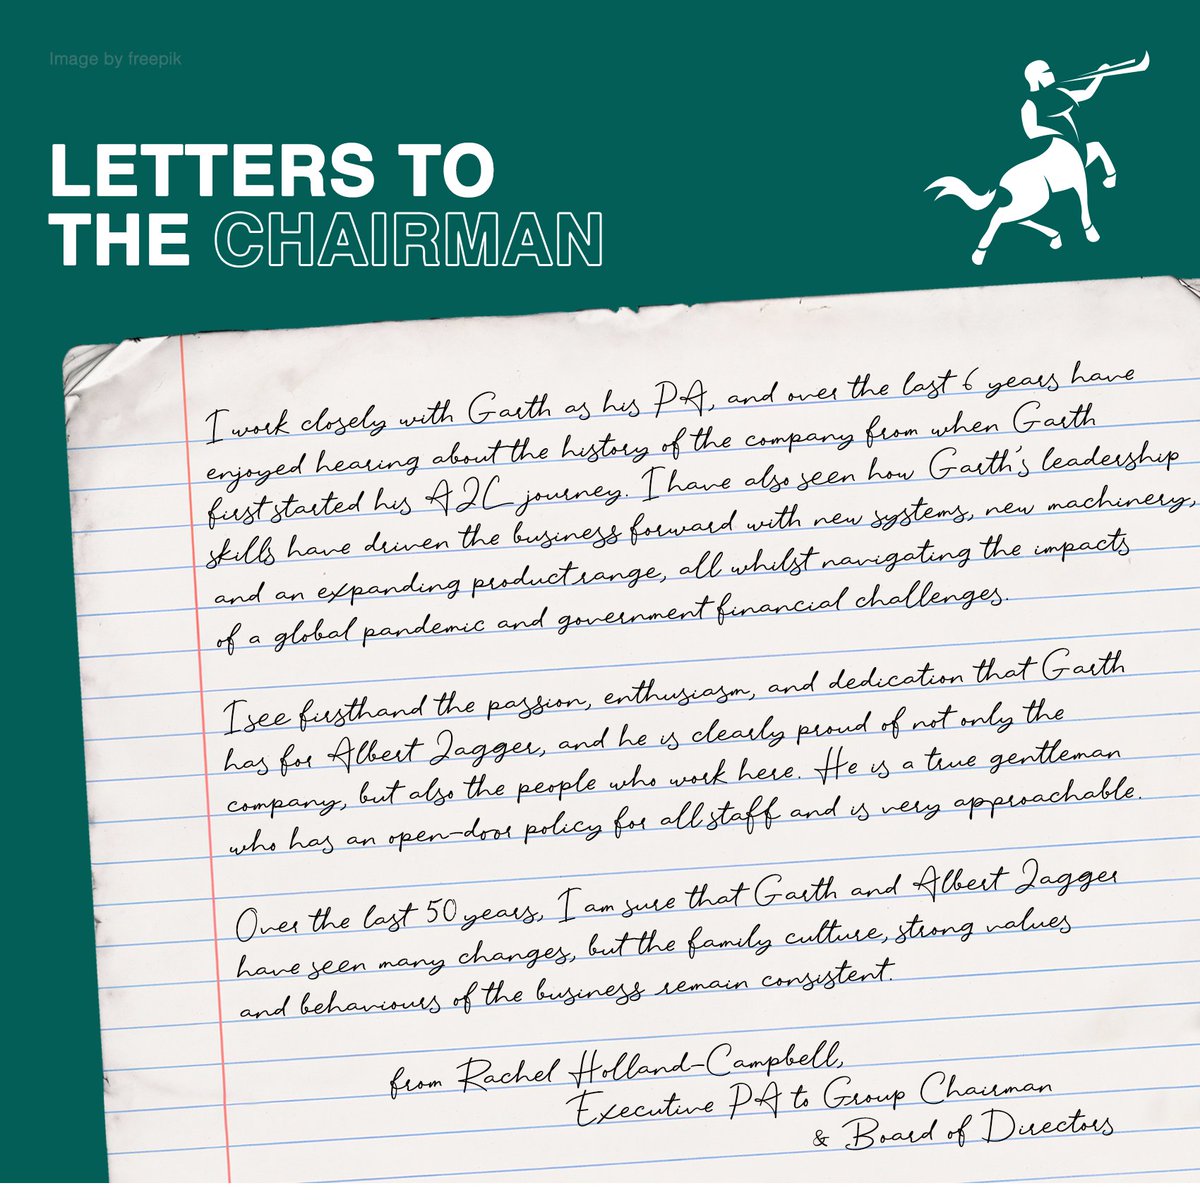 Image by freepik
LETTERS TO
THE CHAIRMAN
I work closely with Garth as his PA, and over the last 6 years have
enjoyed hearing about the history of the company from when Garth
first started his AJL journey. I have also seen how Garth's leadership
skills have driven the business forward with new systems, new machinery,
and an expanding product range, all whilst navigating the impacts
of a global pandemic and government financial challenges.
I see firsthand the passion, enthusiasm, and dedication that Garth
has for Albert Jagger, and he is clearly proud of not only the
company, but also the people who work here. He is a true gentleman
who has an open-door policy for all staff and is very approachable.
Over the last 50 years, I am sure that Garth and Albert Jagger
have seen many changes, but the family culture, strong values
and behaviours of the business remain consistent.
from Rachel Holland-Campbell,
Executive PA to Group Chairman
& Board of Directors